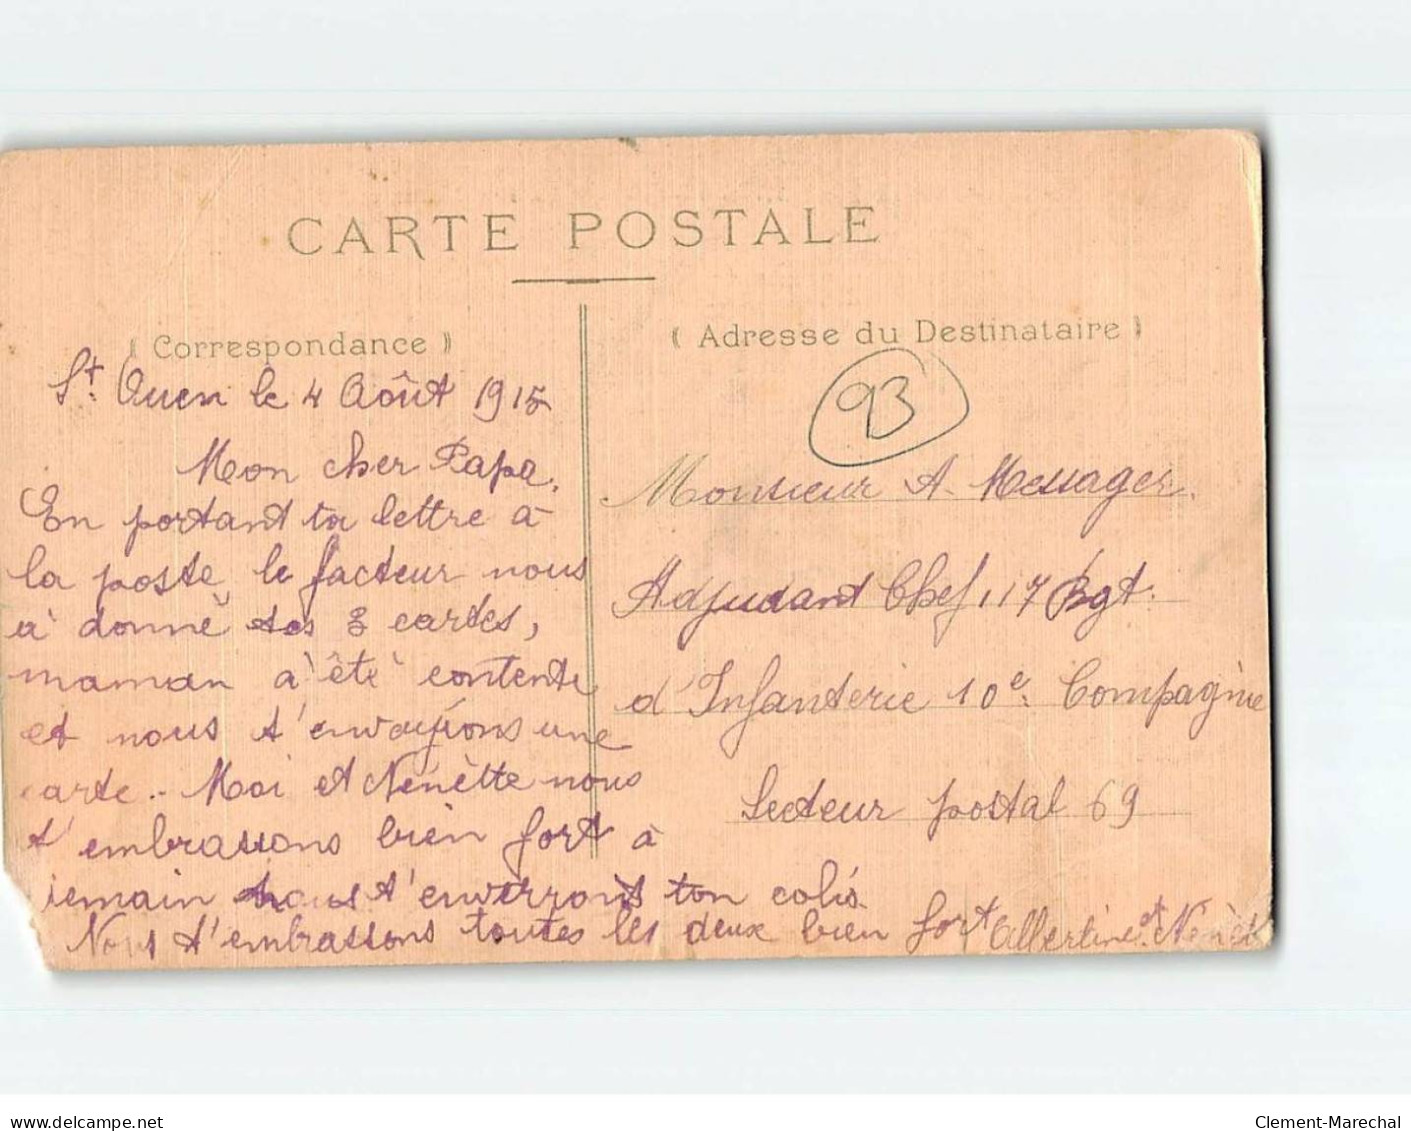 CARTE POSTALE
( Correspondance )
St. Ouen le 4 Août 1915
Mon cher Papa,
En portant ta lettre à
la poste, le facteur nous
à donné tes 3 cartes,
maman à été contente
et nous t'envoyions une
carte. Moi et Nenètte nous
t'embrassons bien fort à
demain nous t'enverrons ton colis.
Nous t'embrassons toutes les deux bien fort Albertine et Nenèt
( Adresse du Destinataire )
93
Monsieur A. Messager.
Adjudant Chef 117 Rgt.
d'Infanterie 10e. Compagnie
Secteur postal 69
www.delcampe.net
Clement-Marechal